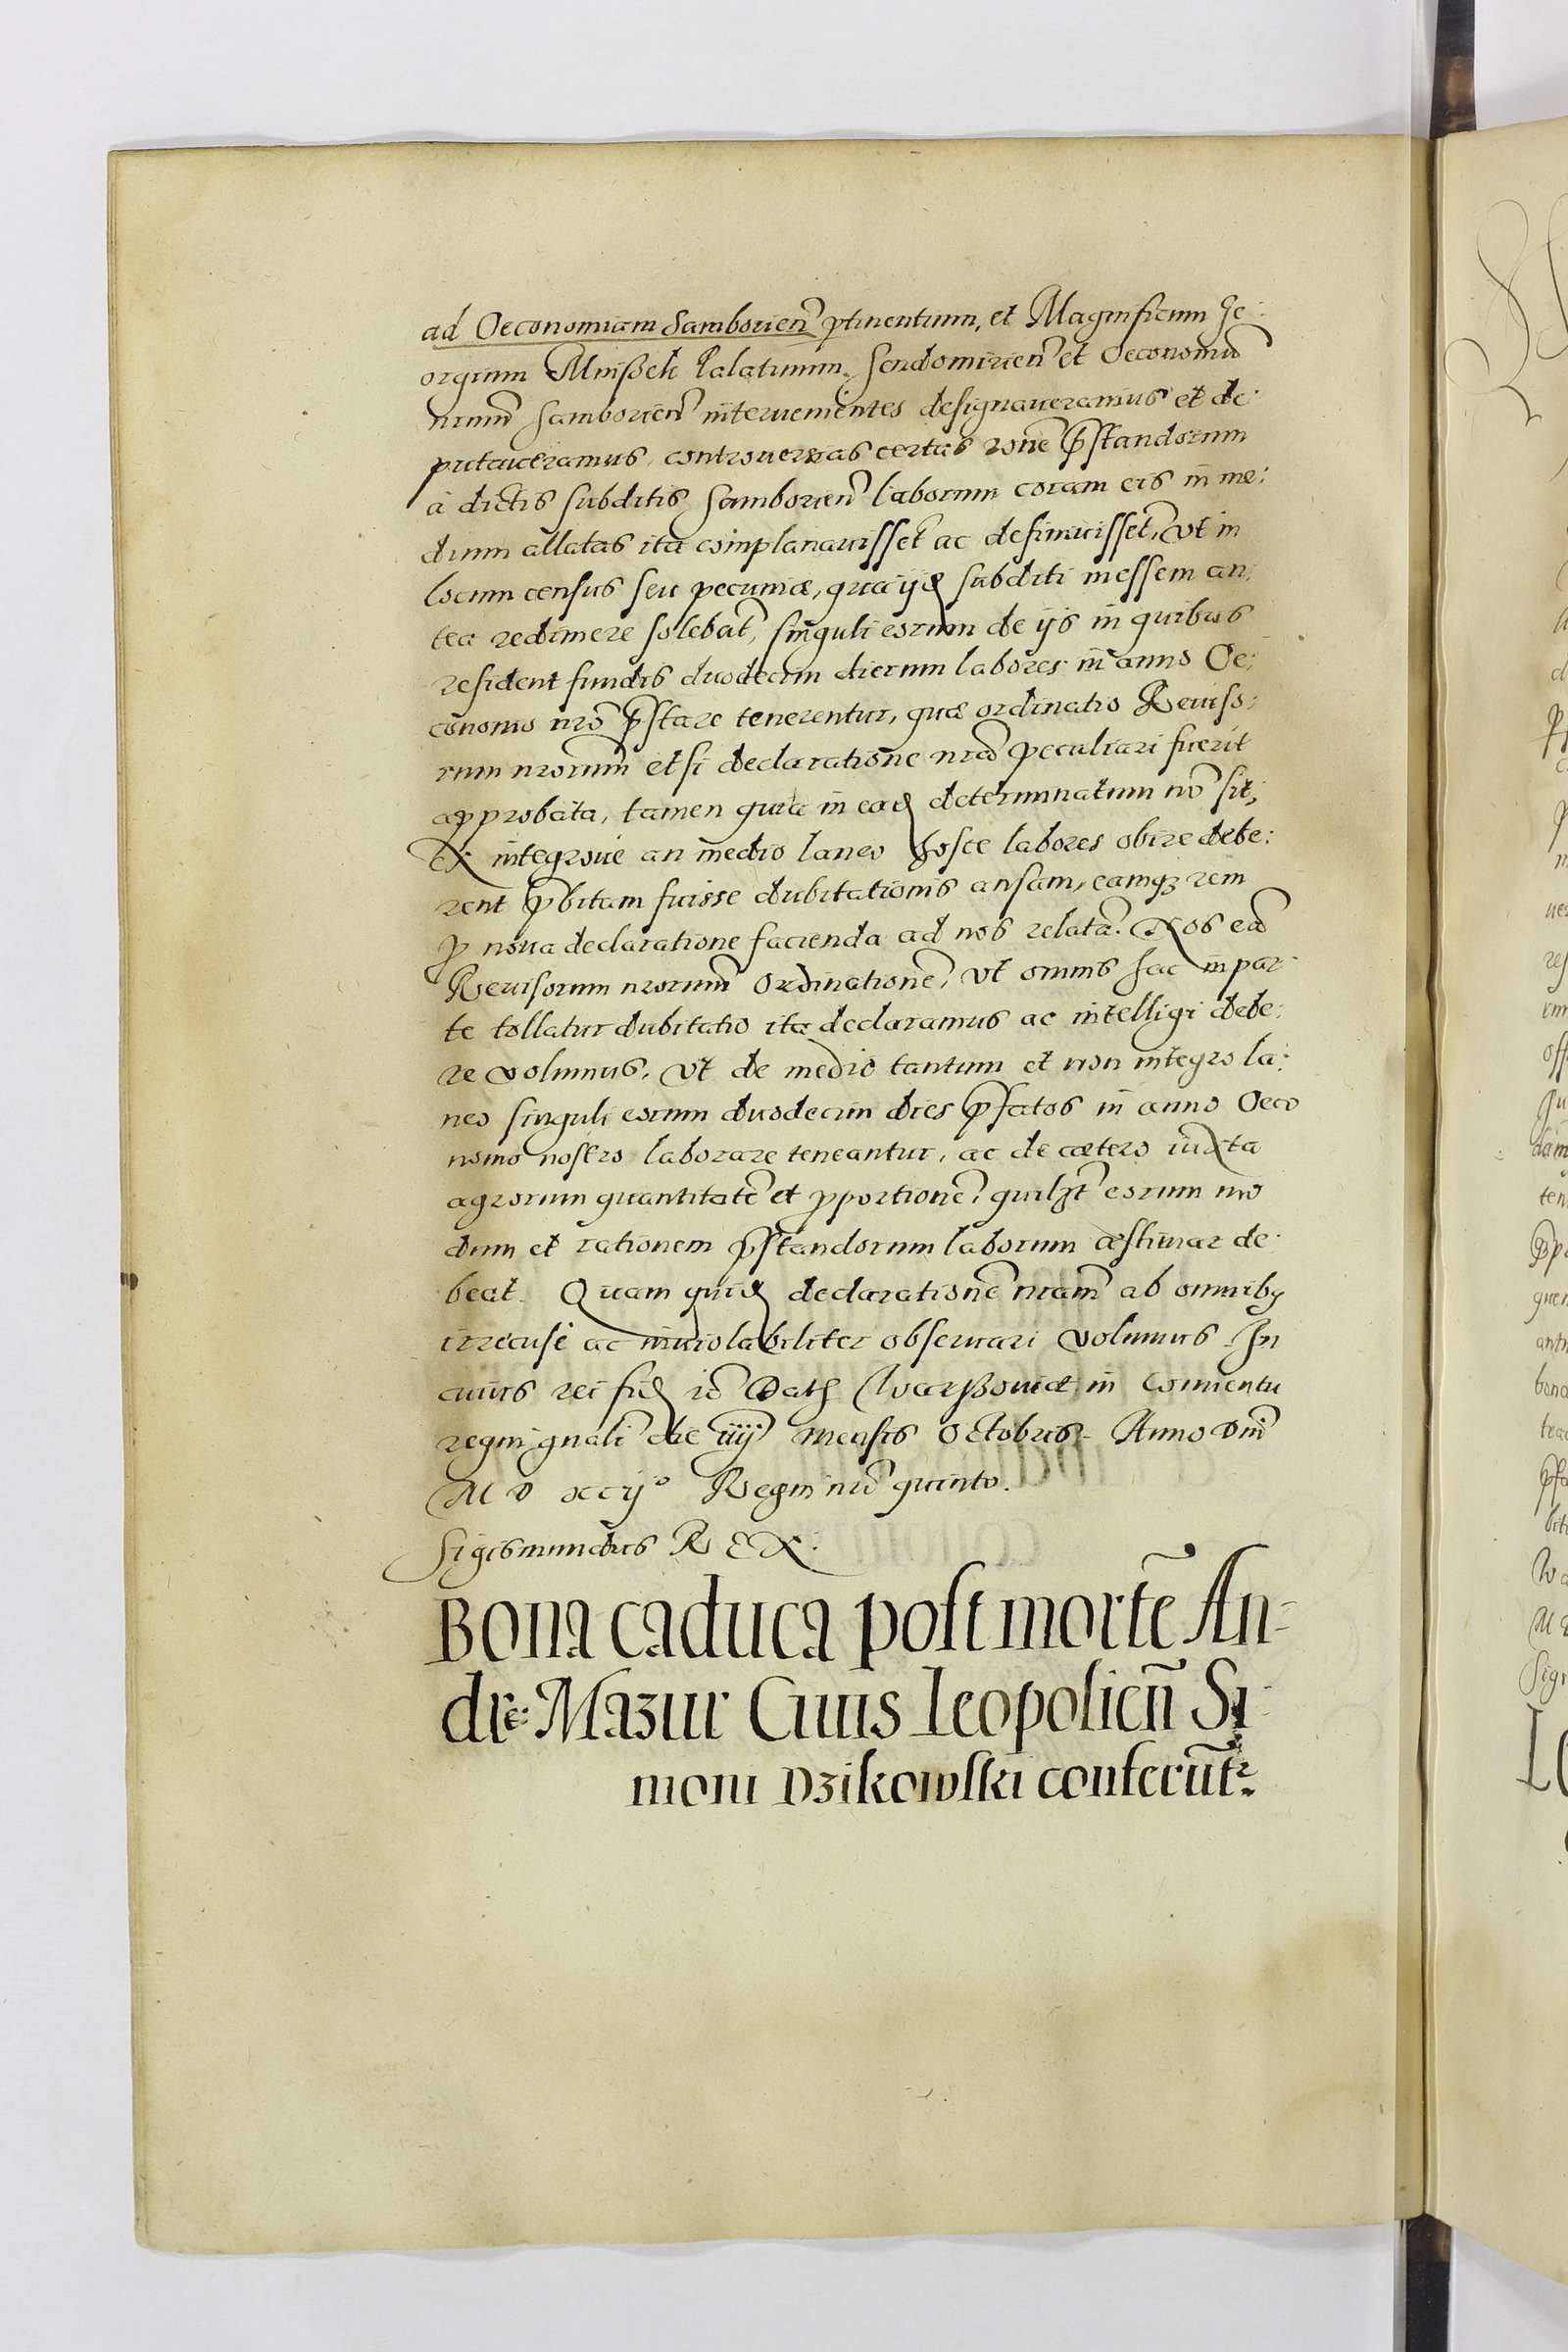 ad Oeconomiam Samborien̄ ꝑtinentium, et Magnificum Ge:
orgium Mnißek Palatinum Sendomirien̄ et Oeconomū
nrum̄ Samborien̄ interuenientes designaueramus et de:
putaueramus, controuersias certas rōne p̄standorum
à dictis subditis Samborien̄ laborum coram eis in me:
dium allatas ita complanauisset ac definiuisset, vt in
locum census seu pecuniæ, qua ijd subditi messem an:
tea redimere solebāt, singuli eorum de ijs in quibus
resident fundis duodecim dierum labores in anno Oe:
conomo nrō p̄stare tenerentur, quæ ordinatio Reuiso:
rum nrorum̄ etsi declaratione nrā peculiari fuerit
approbata, tamen quia in ead determinatum nō sit,
Ex integroue an medio laneo hosce labores obire debe:
rent p̄bitam fuisse dubitationis ansam, eamqꝫ rem
ꝓ noua declaratione facienda ad nos relatā. Nos eā
Reuisorum nrorum̄ Ordinationē, vt omnis hac in par:
te tollatur dubitatio ita declaramus ac intelligi debe:
re volumus. Vt de medio tantum et non integro la:
neo singuli eorum duodecim dies p̄fatos in anno Oeco
nomo nostro laborare teneantur, ac de cætero iuxta
agrorum quantitatē et ꝓportionē, quilꝫt eorum mo
dum et rationem p̄standorum laborum æstimar de:
beat. Quam quid declarationē nram̄ ab omnibꝫ
irrecusè ac inuiolabiliter obseruari volumus. In
cuius rei fid rō Dat Warßouiæ in Conuentu
regni gnali die iiij mensis Octobris. Anno Dni
M D xcijº Regni nrī quinto.
Sigismundus REX.
Bona caduca post mortē An=
dreę: Mazur Ciuis Leopolien̄ Si
moni Dzikowski conferūtᷣ.